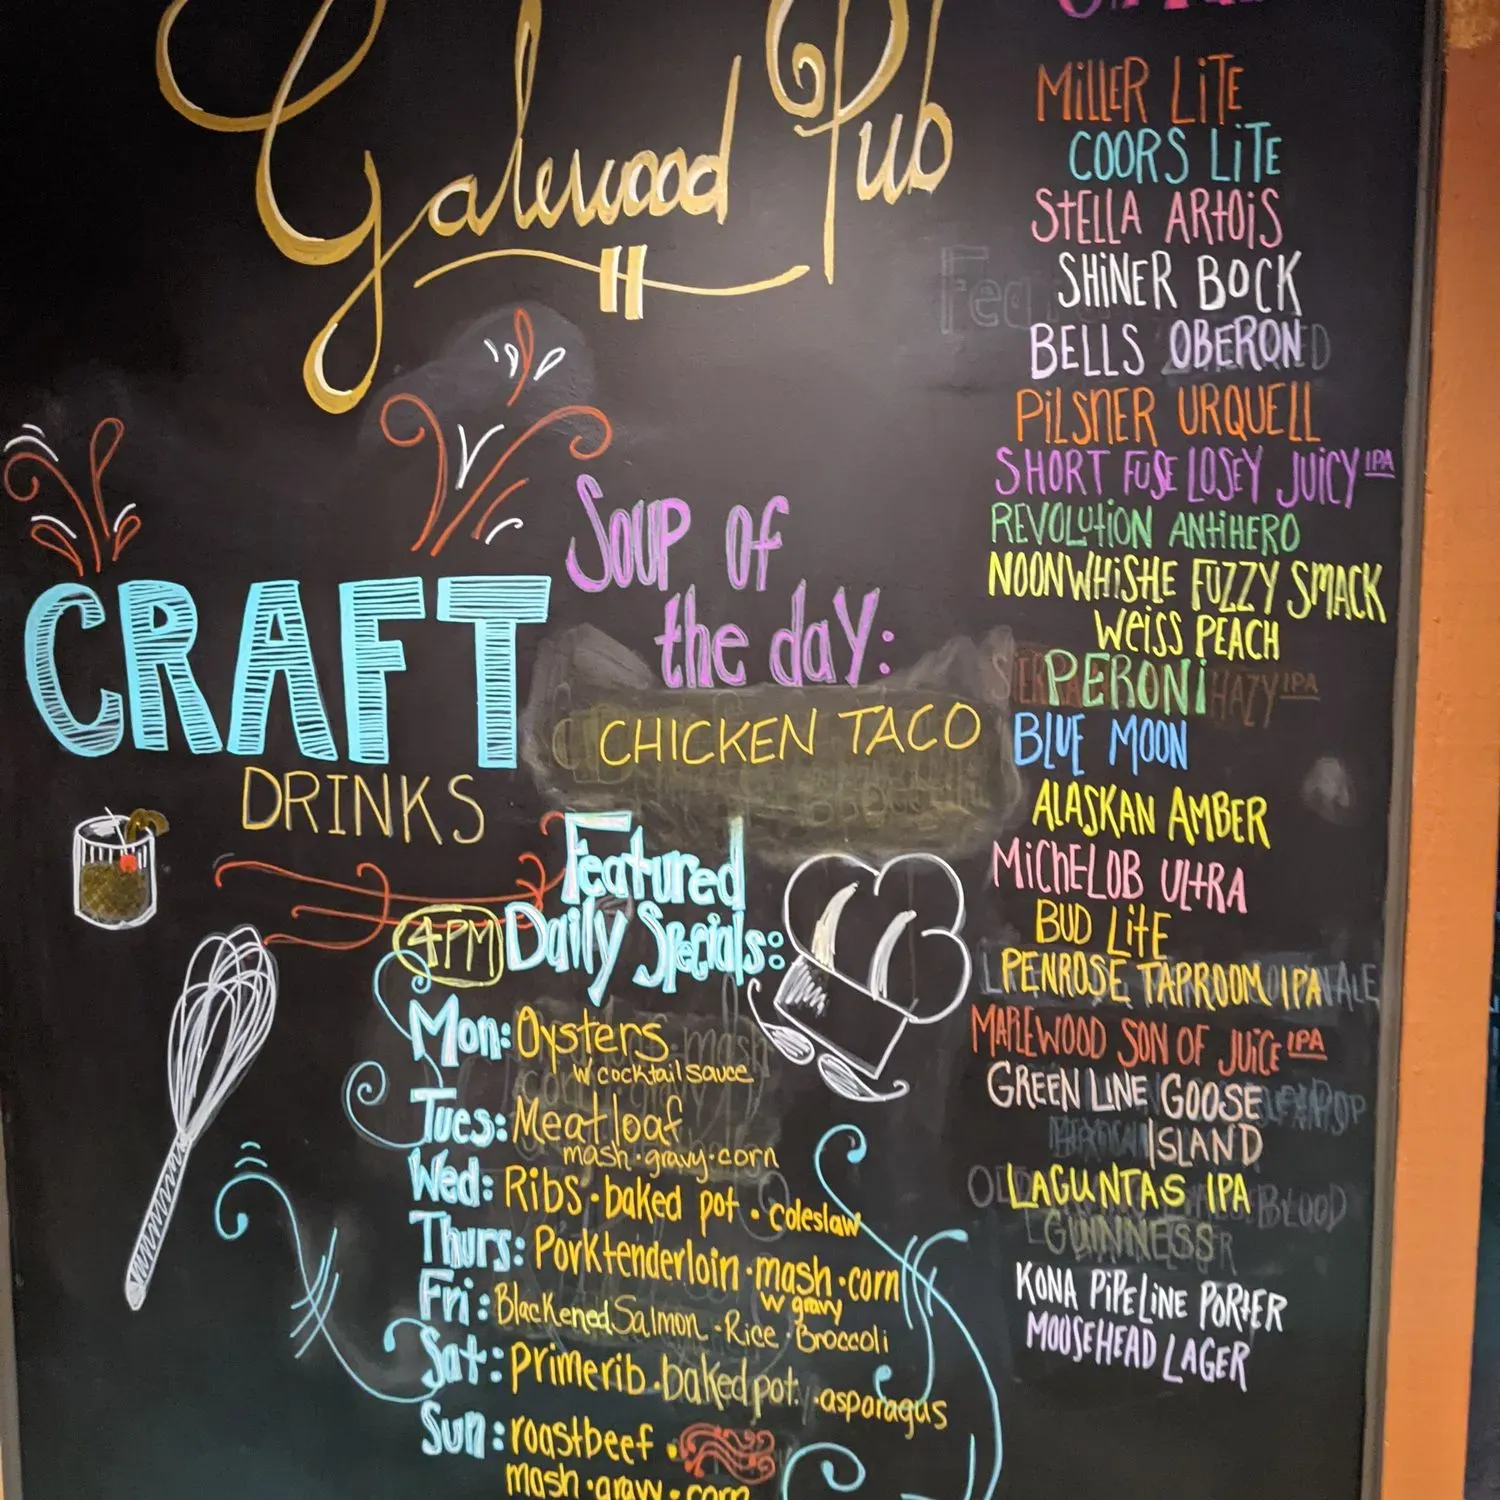 Galewood Pub
MILLER LITE
COORS LITE
STELLA ARTOIS
SHINER BOCK
BELLS OBERON
PILSNER URQUELL
SHORT FUSE LOSEY JUICY IPA
REVOLUTION ANTIHERO
NOONWHISTLE FUZZY SMACK
WEISS PEACH
PERONI
BLUE MOON
ALASKAN AMBER
MICHELOB ULTRA
BUD LITE
PENROSE TAPROOM IPA
MAPLEWOOD SON OF JUICE IPA
GREEN LINE GOOSE
ISLAND
LAGUNTAS IPA
GUINNESS
KONA PIPELINE PORTER
MOOSEHEAD LAGER
CRAFT
DRINKS
Soup of
the day:
CHICKEN TACO
Featured
4PM Daily Specials:
Mon: Oysters
w cocktail sauce
Tues: Meatloaf
mash · gravy · corn
Wed: Ribs · baked pot · coleslaw
Thurs: Porktenderloin · mash · corn
w gravy
Fri: Blackened Salmon · Rice · Broccoli
Sat: primerib · baked pot · asparagus
Sun: roastbeef ·
mash · gravy · corn